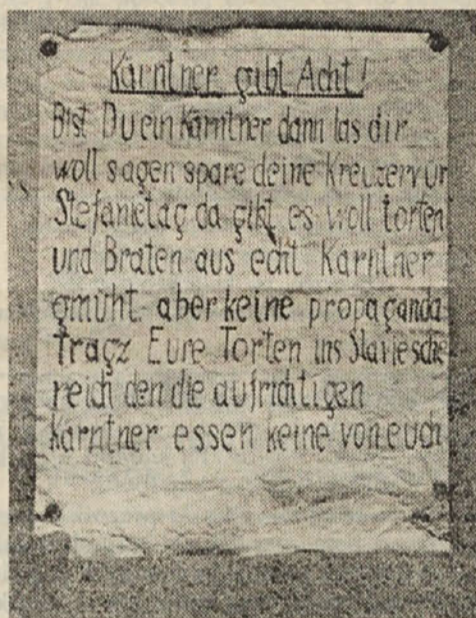 Kärntner gibt Acht!
Bist Du ein Kärntner dann las dir
woll sagen spare deine Kreuzer vur
Stefanietag da gibt es woll torten
und Braten aus echt Karntner
gmüht. aber keine propaganda
Tragz Eure Torten ins Slaviesche
reich den die aufrichtigen
Karntner essen keine von euch